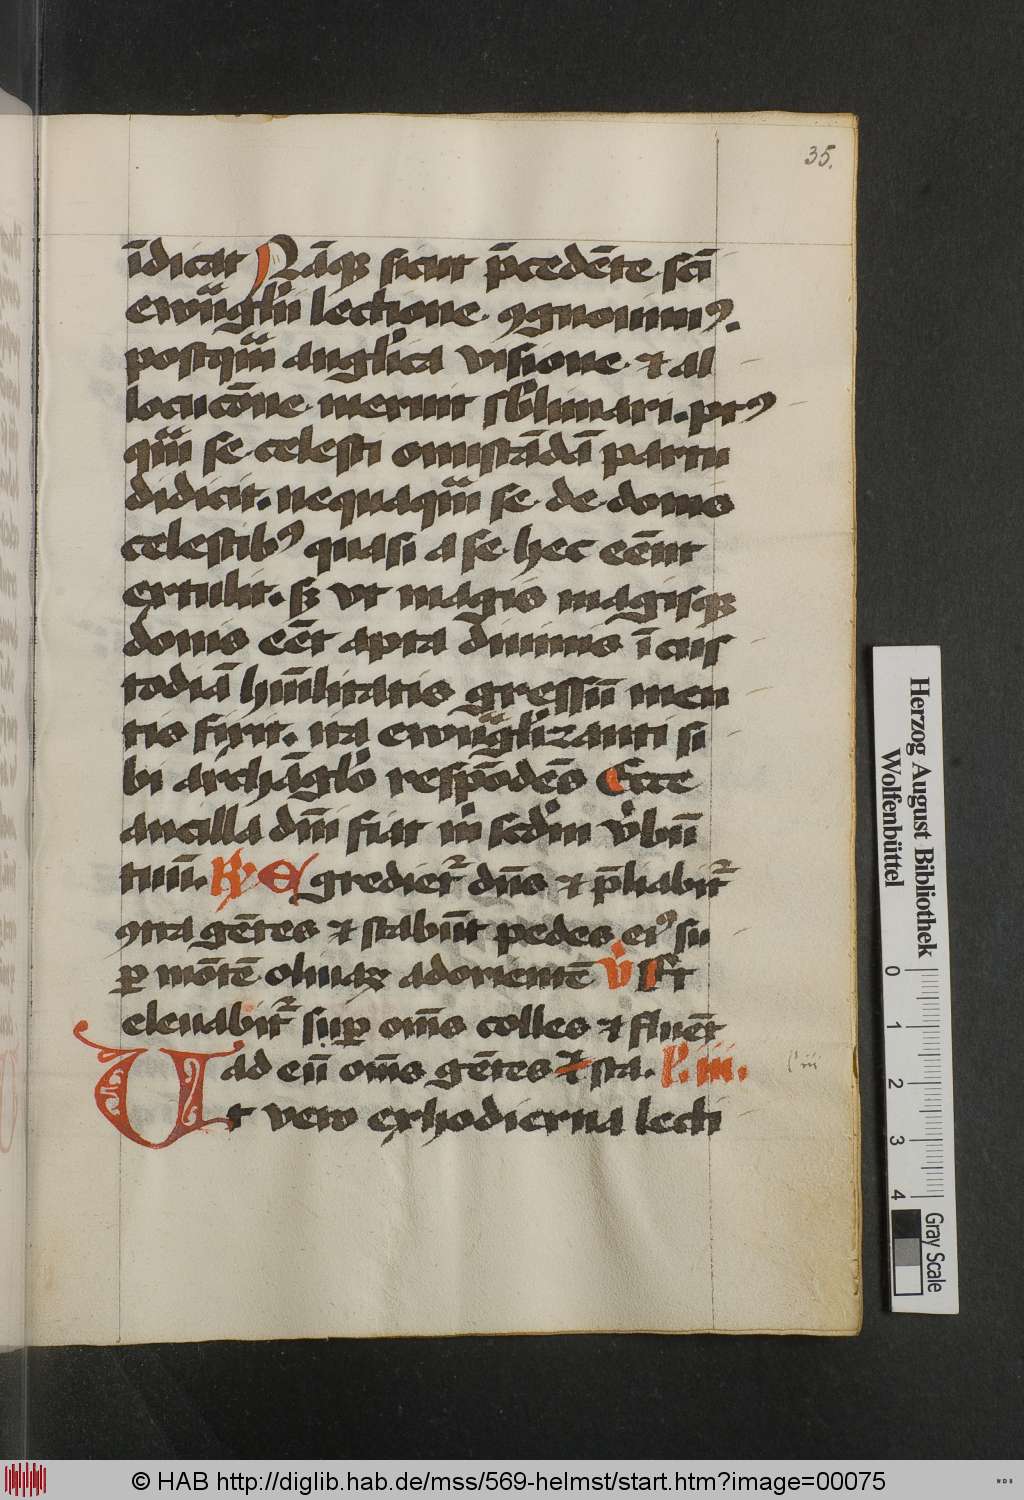 35.
īdicāt Nāq̨ sicut p̄cedēte sc̄i
ewāgłii lectione ꝯgnouimꝰ.
postqᵃm anglica visione ⁊ al
locucōne meruit sb̓limari. ptꝰ
qᵃm se celesti onustādā partu
didicit. nequaqᵃm se de donis
celestibꝰ quasi a se hec eēnt
extulit. sꝫ vt magis magisqꝫ
donis eēt apta diuinis ī cus
todiā hūilitatis gressū men
tis fixit. ita ewāgłizanti si
bi archāglo respōdēs Ecce
ancilla dn̄i fiat m̓ scd̓m v̓bū
tuū. ℟ Egrediet᷑ dn̄s ⁊ p̄liabit᷑
ꝯtra gētes ⁊ stabūt pedes eiꝰ su
ꝑ mōtē oliuaꝝ ad orientē v̓ Et
eleuabit᷑ suꝑ om̄s colles ⁊ fluēt
ad eū om̄s gētes ⁊ sta. P. iii.
Ut vero ex hodierna lecti
P iii
Herzog August Bibliothek
Wolfenbüttel
0 1 2 3 4
Gray Scale
© HAB http://diglib.hab.de/mss/569-helmst/start.htm?image=00075